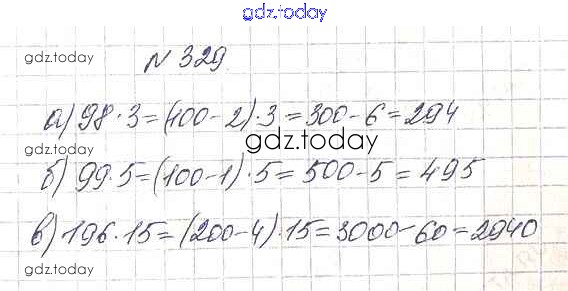 gdz.today
gdz.today
N 329
а) 98·3=(100-2)·3=300-6=294
gdz.today
gdz.today
б) 99·5=(100-1)·5=500-5=495
в) 196·15=(200-4)·15=3000-60=2940
gdz.today
gdz.today